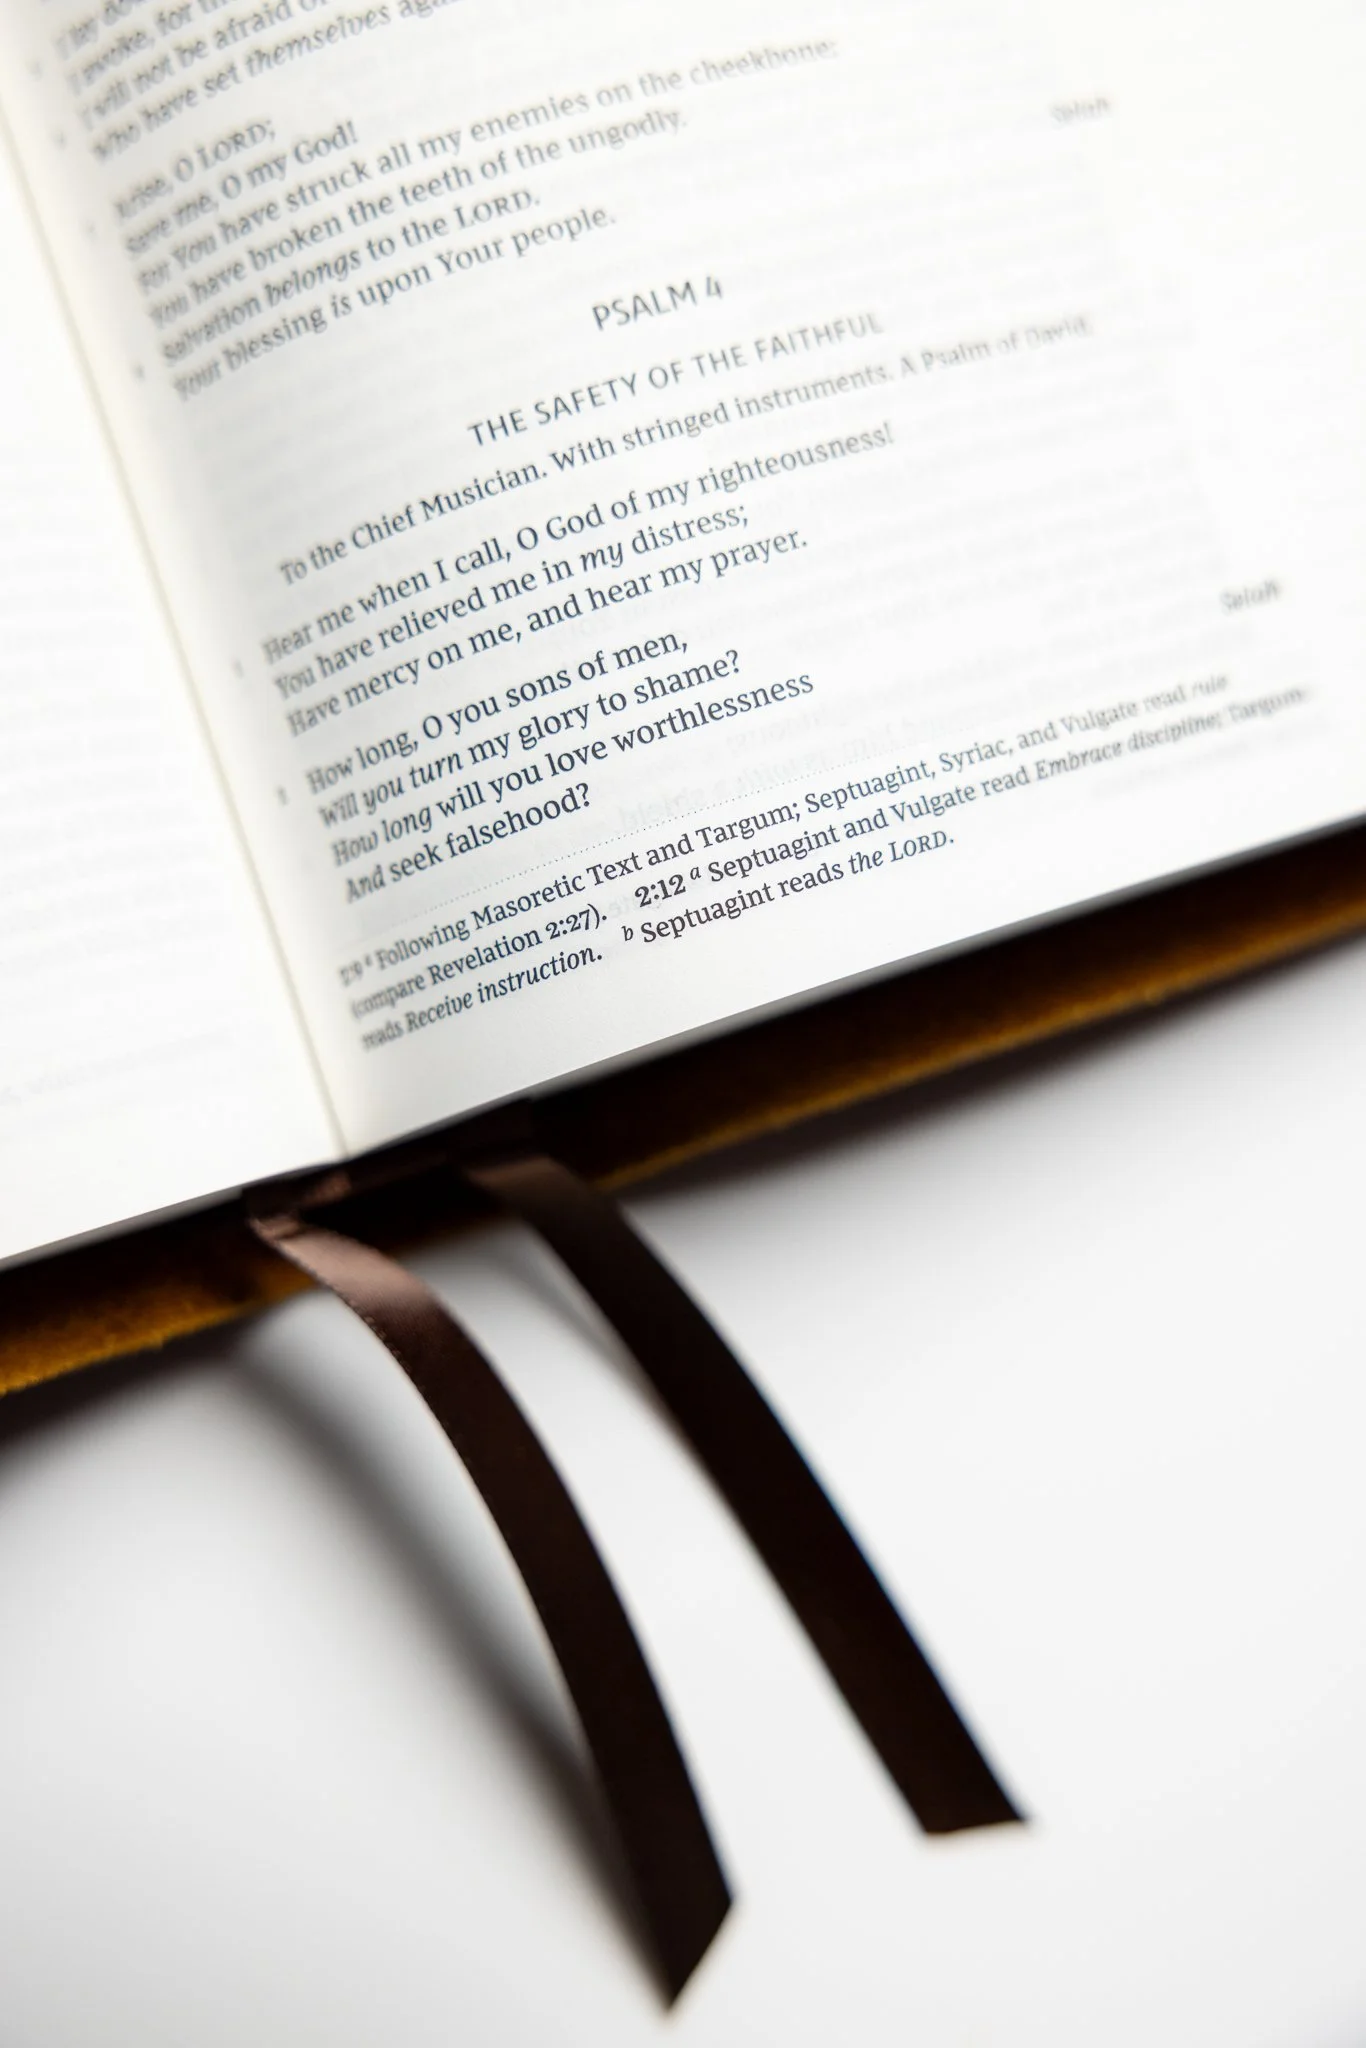 I lay do
I awoke, for th
I will not be afraid of
Who have set themselves aga
Arise, O LORD;
Save me, O my God!
For You have struck all my enemies on the cheekbone;
You have broken the teeth of the ungodly.
Salvation belongs to the LORD.
Your blessing is upon Your people.
Selah
PSALM 4
THE SAFETY OF THE FAITHFUL
To the Chief Musician. With stringed instruments. A Psalm of David.
1 Hear me when I call, O God of my righteousness!
You have relieved me in my distress;
Have mercy on me, and hear my prayer.
2 How long, O you sons of men,
Will you turn my glory to shame?
How long will you love worthlessness
And seek falsehood?
Selah
2:9 a Following Masoretic Text and Targum; Septuagint, Syriac, and Vulgate read rule
(compare Revelation 2:27). 2:12 a Septuagint and Vulgate read Embrace discipline; Targum
reads Receive instruction. b Septuagint reads the LORD.